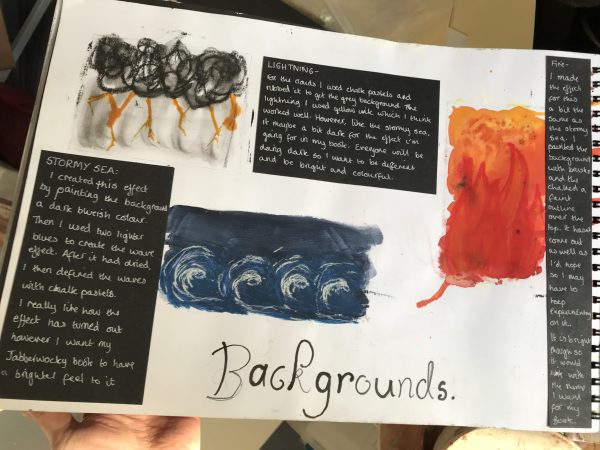 LIGHTNING-
For the clouds I used chalk pastels and
rubbed it to get the grey background. The
lightning I used yellow ink which I think
worked well. However, like the stormy sea,
it maybe a bit dark for the effect i'm
going for in my book. Everyone will be
doing dark so I want to be different
and be bright and colourful.
STORMY SEA:
I created this effect
by painting the background
a dark blueish colour.
Then I used two lighter
blues to create the wave
effect. After it had dried,
I then defined the waves
with chalk pastels.
I really like how the
effect has turned out
however I want my
Jabberwocky book to have
a brighter feel to it
Fire-
I made
the effect
for this
a bit the
same as
the stormy
sea. I
painted the
background
with
and the
chalked a
faint
outline
over the
top. it hasn't
come out
as well as
I'd hope
so I may
have to
keep
experimenting
on it.
It is bright
though so
it would
with
the theme
I want
for my
book.
Backgrounds.